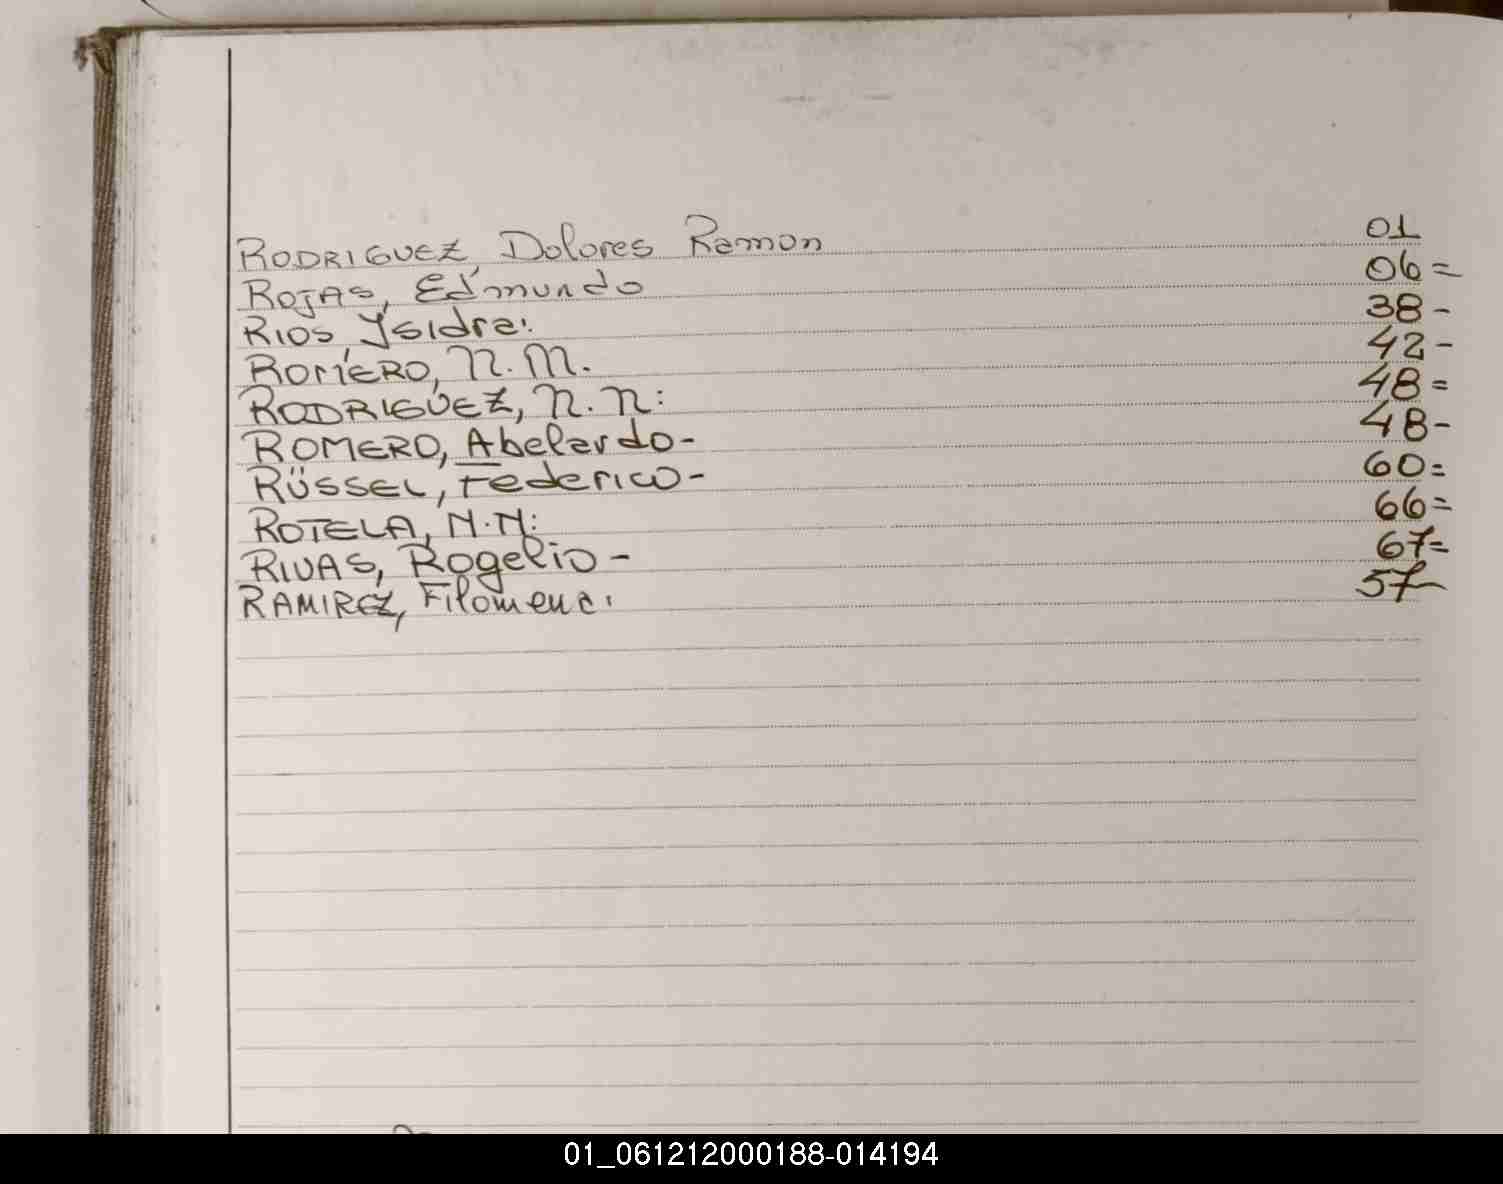 RODRIGUEZ, Dolores Ramon 01
ROJAS, Edmundo 06=
RIOS, Ysidra: 38-
ROMERO, N. M. 42-
RODRIGUEZ, N. N: 48=
ROMERO, Abelardo- 48-
RÜSSEL, Federico- 60=
ROTELA, N.N: 66=
RIVAS, Rogelio- 67=
RAMIREZ, Filomena: 57-
01_061212000188-014194